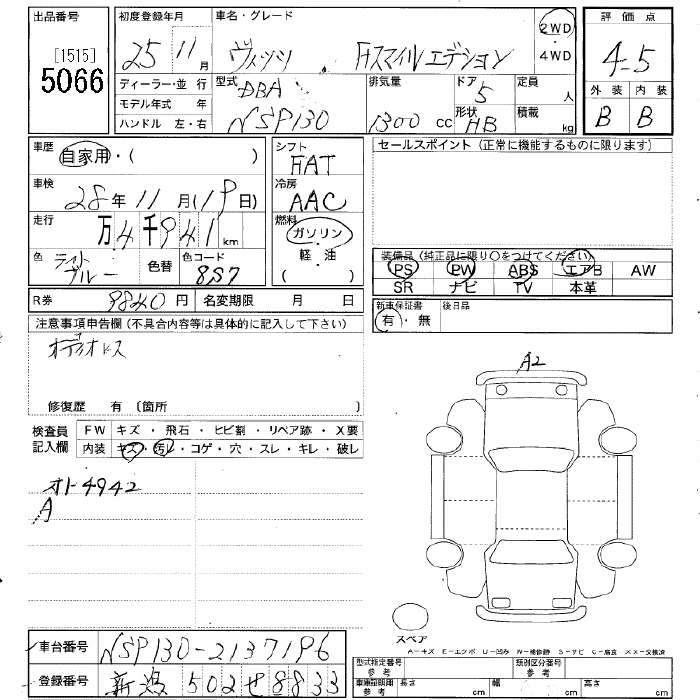 出品番号
[1515]
5066
初度登録年月
25年11月
ディーラー・並行
モデル年式 年
ハンドル 左・右
車名・グレード
ヴィッツ Fスマイルエデション
2WD
・
4WD
型式
DBA
NSP130
排気量
1300 cc
ドア
5
形状
HB
定員
人
積載
kg
評価点
4.5
外装 内装
B B
車歴
自家用・( )
車検
28年11月(19日)
走行
万4千941km
色 ライトブルー 色替 色コード 8S7
シフト
FAT
冷房
AAC
燃料
ガソリン
軽・油
( )
セールスポイント (正常に機能するものに限ります)
装備品(純正品に限り〇をつけてください)
PS PW ABS エアB AW
SR ナビ TV 本革
R券 9840円 名変期限 月 日
新車保証書 後日品
有・無
注意事項申告欄(不具合内容等は具体的に記入して下さい)
オーディオレス
修復歴 有 〔箇所 〕
検査員
記入欄
FW キズ・飛石・ヒビ割・リペア跡・X要
内装 キズ・汚レ・コゲ・穴・スレ・キレ・破レ
オト4942
A
A2
スペア
A-キズ E-エクボ U-凹み W-補修跡 S-サビ C-腐食 XX-交換済
車台番号 NSP130-2137196
登録番号 新潟 502せ8833
型式指定番号
参考
類別区分番号
参考
車庫証明用
参考
長さ cm 幅 cm 高さ cm